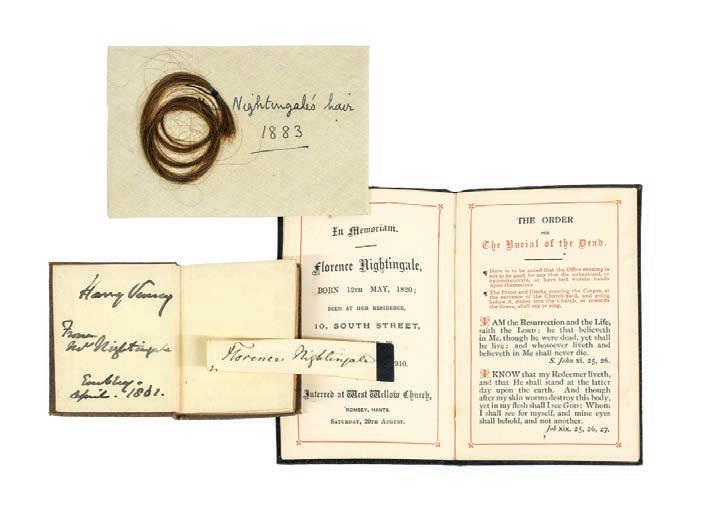 Nightingale's hair
1883
In Memoriam.
Florence Nightingale,
BORN 12TH MAY, 1820;
DIED AT HER RESIDENCE,
10, SOUTH STREET,
1910.
Interred at West Wellow Church,
ROMSEY, HANTS.
SATURDAY, 20TH AUGUST.
THE ORDER
FOR
The Burial of the Dead.
¶ Here is to be noted that the Office ensuing is
not to be used for any that die unbaptized, or
excommunicate, or have laid violent hands
upon themselves.
¶ The Priest and Clerks meeting the Corpse at
the entrance of the Church-yard, and going
before it, either into the Church, or towards
the Grave, shall say or sing,
I AM the Resurrection and the Life,
saith the LORD: he that believeth
in Me, though he were dead, yet shall
he live: and whosoever liveth and
believeth in Me shall never die.
S. John xi. 25, 26.
I KNOW that my Redeemer liveth,
and that He shall stand at the latter
day upon the earth. And though
after my skin worms destroy this body,
yet in my flesh shall I see GOD: Whom
I shall see for myself, and mine eyes
shall behold, and not another.
Job xix. 25, 26, 27.
Harry Verney
From
Nightingale
Embley.
April.
Florence Nightingale